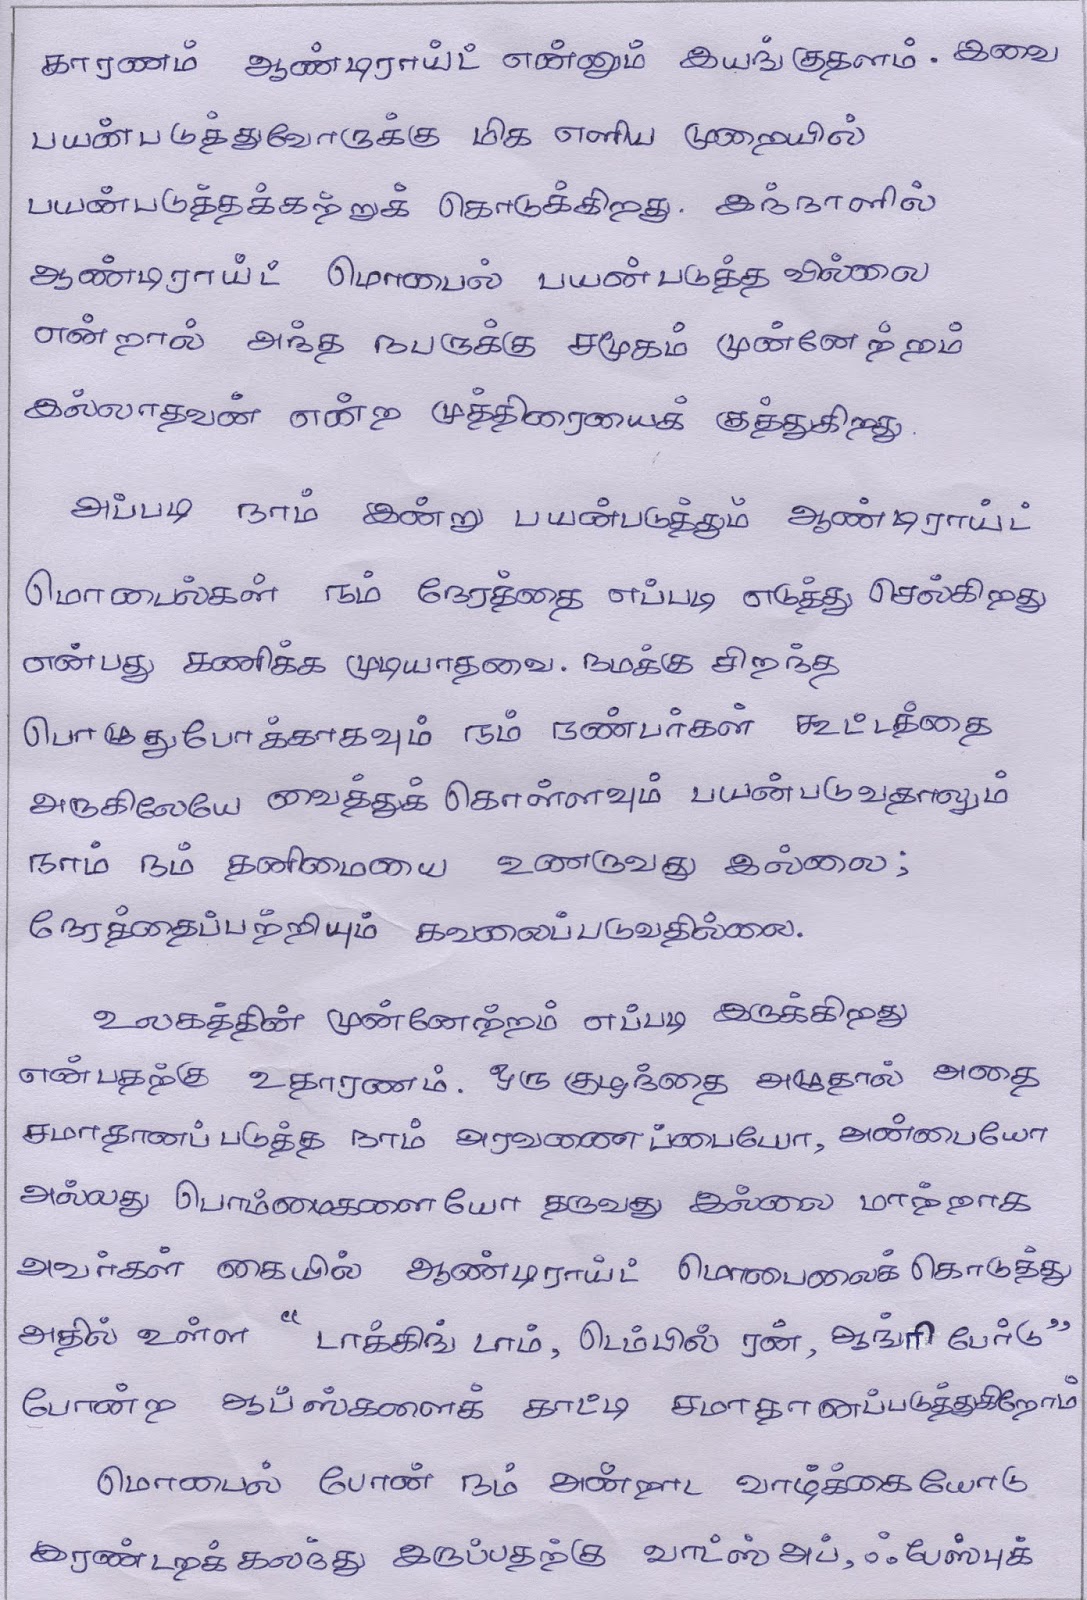 காரணம் ஆண்டிராய்ட் என்னும் இயங்குதளம். இவை
பயன்படுத்துவோருக்கு மிக எளிய முறையில்
பயன்படுத்தக்கற்றுக் கொடுக்கிறது. இந்நாளில்
ஆண்டிராய்ட் மொபைல் பயன்படுத்த வில்லை
என்றால் அந்த நபருக்கு சமூகம் முன்னேற்றம்
இல்லாதவன் என்ற முத்திரையைக் குத்துகிறது.
அப்படி நாம் இன்று பயன்படுத்தும் ஆண்டிராய்ட்
மொபைல்கள் நம் நேரத்தை எப்படி எடுத்து செல்கிறது
என்பது கணிக்க முடியாதவை. நமக்கு சிறந்த
பொழுதுபோக்காகவும் நம் நண்பர்கள் கூட்டத்தை
அருகிலேயே வைத்துக் கொள்ளவும் பயன்படுவதாலும்
நாம் நம் தனிமையை உணருவது இல்லை;
நேரத்தைப்பற்றியும் கவலைப்படுவதில்லை.
உலகத்தின் முன்னேற்றம் எப்படி இருக்கிறது
என்பதற்கு உதாரணம். ஒரு குழந்தை அழுதால் அதை
சமாதானப் படுத்த நாம் அரவணைப்பையோ, அன்பையோ
அல்லது பொம்மைகளையோ தருவது இல்லை மாற்றாக
அவர்கள் கையில் ஆண்டிராய்ட் மொபைலைக் கொடுத்து
அதில் உள்ள "டாக்கிங் டாம், டெம்பில் ரன், ஆங்ரி பேர்டு"
போன்ற ஆப்ஸ்களைக் காட்டி சமாதானப்படுத்துகிறோம்
மொபைல் போன் நம் அன்றாட வாழ்க்கையோடு
இரண்டறக் கலந்து இருப்பதற்கு வாட்ஸ் அப், ஃபேஸ்புக்